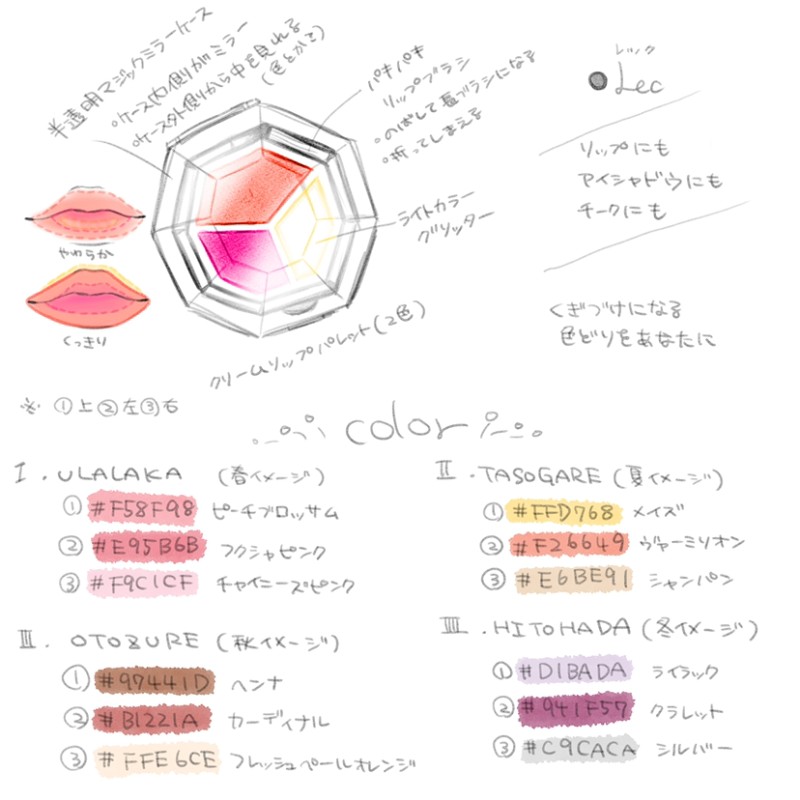 半透明マジックミラーケース
・ケース内側がミラー
・ケース外側から中を見れる
(色とかさ)
パキパキ
リップブラシ
・のばして長ブラシになる
・折ってしまえる
レック
●Lec
リップにも
アイシャドウにも
チークにも
ライトカラー
グリッター
やわらか
くっきり
クリームリップパレット(2色)
くぎづけになる
色どりをあなたに
※ ①上②左③右
color
I. ULALAKA (春イメージ)
① #F58F98 ピーチブロッサム
② #E95B6B フクシャピンク
③ #F9C1CF チャイニーズピンク
II. TASOGARE (夏イメージ)
① #FFD768 メイズ
② #F26649 ヴァーミリオン
③ #E6BE91 シャンパン
III. OTOZURE (秋イメージ)
① #97441D ヘンナ
② #B1221A カーディナル
③ #FFE6CE フレッシュペールオレンジ
IIII. HITOHADA (冬イメージ)
① #D1BADA ライラック
② #941F57 クラレット
③ #C9CACA シルバー